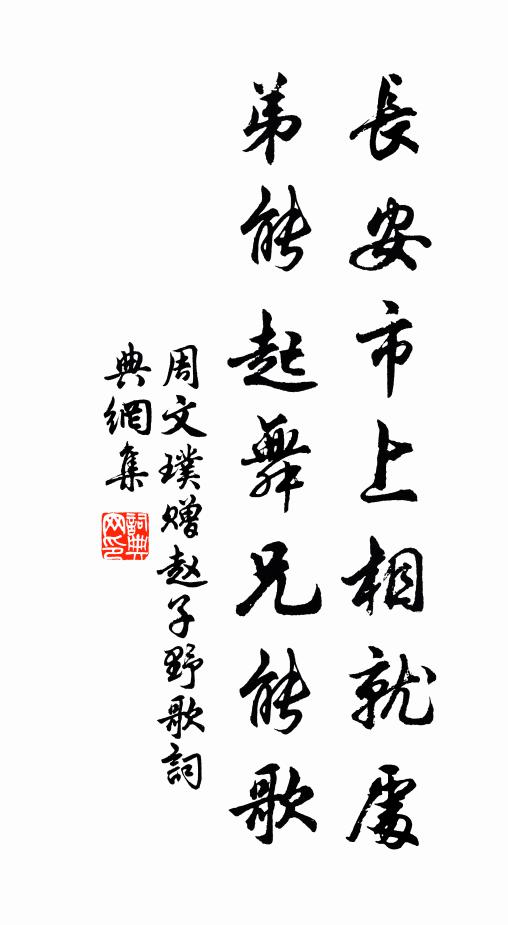 長安市上相就處
弟能起舞兄能歌
周文璞赠赵子野歌詞
典網集
詞典網印